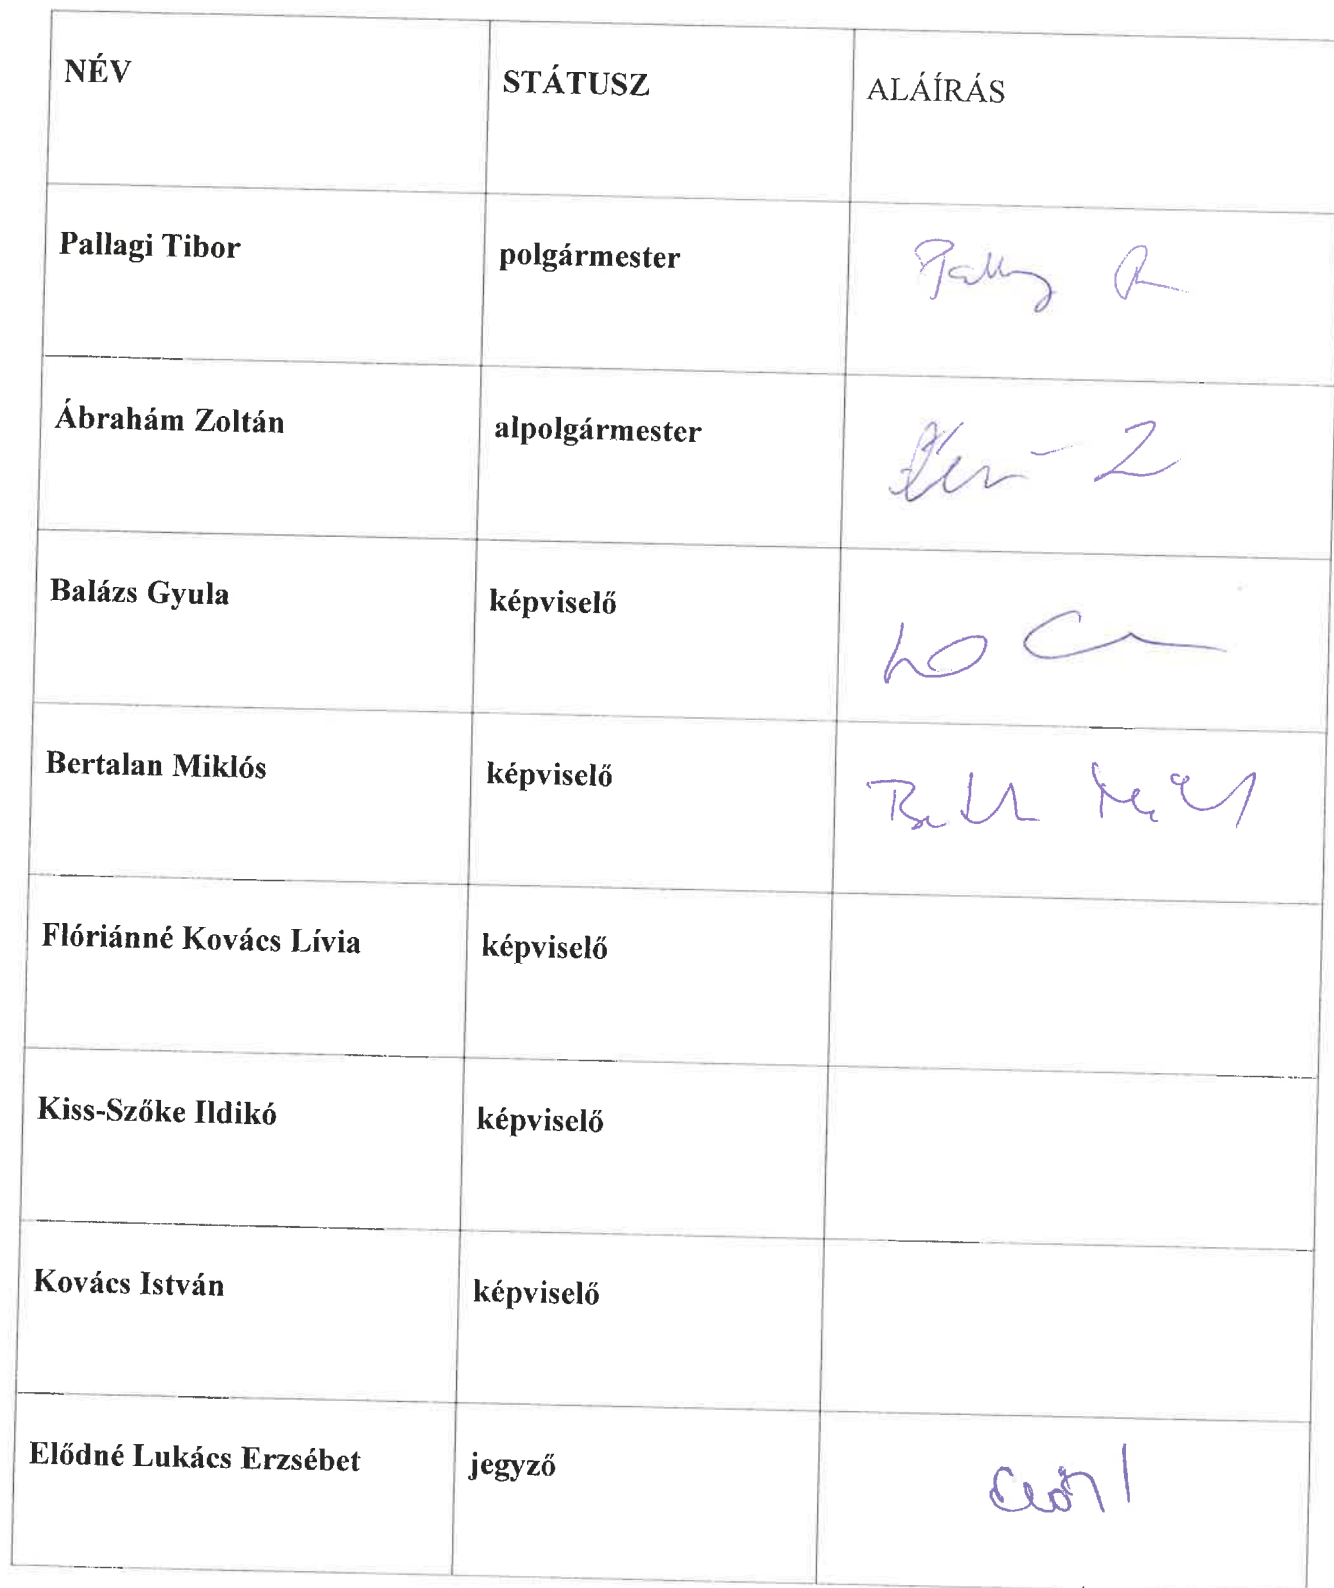 NÉV STÁTUSZ ALÁÍRÁS
Pallagi Tibor polgármester
Ábrahám Zoltán alpolgármester
Balázs Gyula képviselő
Bertalan Miklós képviselő
Flóriánné Kovács Lívia képviselő
Kiss-Szőke Ildikó képviselő
Kovács István képviselő
Elődné Lukács Erzsébet jegyző